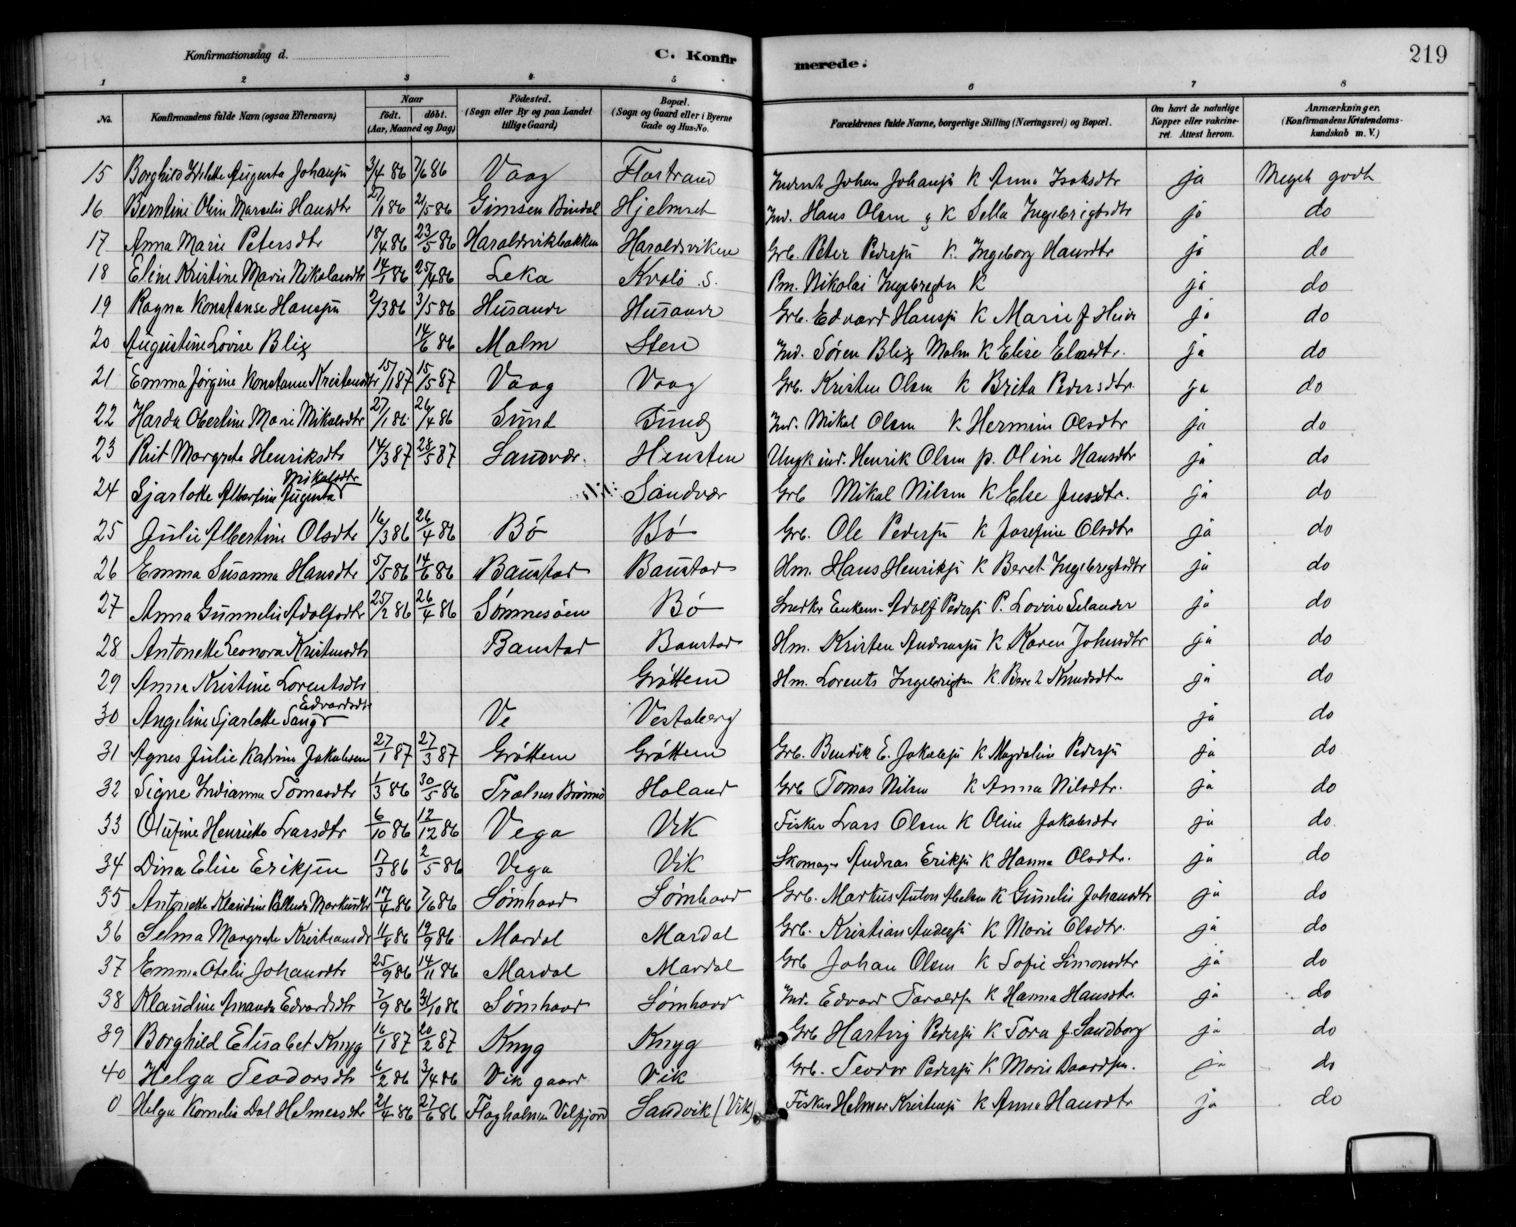 219
Konfirmationsdag d.
C. Konfirmerede.
1 2 3 4 5 6 7 8
No. Konfirmandens fulde Navn (ogsaa Efternavn) Naar födt. döbt. (Aar, Maaned og Dag) Födested. (Sogn eller By og paa Landet tillige Gaard) Bopæl. (Sogn og Gaard eller i Byerne Gade og Hus-No. Forældrenes fulde Navne, borgerlige Stilling (Næringsvei) og Bopæl. Om havt de naturlige Kopper eller vakcineret. Attest herom. Anmærkninger. (Konfirmandens Kristendomskundskab m. V.)
15 Borghild Augusta Johansen 3/4 86 7/6 86 Vaag Flostrand Johan Johansen K Anna Isaksdtr ja Meget godt
16 Berntine Olin Hansdtr 86 2/5 86 Gimsen Bindal Hjelmset Ind. Hans Olsen K Sella Ingebrigtsdtr ja do
17 Anna Marie Petersdtr 18/4 86 23/5 86 Haroldsvikbakken Haroldsviken Grb. Peter Pedersen K. Ingeborg Hansdtr ja do
18 Eline Kristine Marie Nikolaisdtr 86 25/4 86 Leka Kvalö S. Pm. Nikolai Ingebrigtsen K ja do
19 Ragna Konstanse Hansen 2/3 86 3/5 86 Husande Husande Grb. Edvard Hansen K Marie f ja do
20 Augustine Lovise Blix 14/6 86 Malm Steri Ind. Søren Blix Malm K Elise ja do
21 Emma Jørgine Konstanse Kristensdtr 15/1 87 15/5 87 Vaag Vaag Grb. Kristen Olsen K Brita Pedersdtr. ja do
22 Harda Obertine Marie Mikalsdtr 27/1 86 26/4 86 Sund Sund Ind. Mikal Olsen K Hermine Olsdtr ja do
23 Margrete Henriksdtr 14/3 87 28/5 87 Sandvær. Hensten Ungk ind. Henrik Olsen p. Oline Hansdtr ja do
24 Sjarlotte Albertine Augusta Mikalsdtr Sandvær Grb Mikal Nilsen K Else Jensdtr. ja do
25 Julie Albertine Olsdtr 16/3 86 26/4 86 Bö Bö Grb. Ole Pedersen K Josefine Olsdtr ja do
26 Emma Susanna Hansdtr 5/5 86 14/6 86 Baustad Baustad Hm. Hans Henriksen K Beret Ingebrigtsdtr ja do
27 Anna Gunnelie Adolfsdtr 25/2 86 26/4 86 Sömnesöen Bö Snedker Enkem. Adolf Pedersen P. Lovise Selander ja do
28 Antonette Leonora Kristensdtr Baustad Baustad Hm. Kristen Andreasen K Karen Johnsdtr ja do
29 Anna Kristine Lorentsdtr Gröttem Hm. Lorents Ingebrigtsen K. Beret Knudsdtr ja do
30 Angeline Sjarlotte Edvardsdtr Ve Vestaberg ja do
31 Agnes Julie Katrine Jakobsen 27/1 87 27/3 87 Gröttem Gröttem Grb. Bendik E. Jakobsen K Magdaline Pedersen ja do
32 Signe Indianna Tomasdtr 1/3 86 30/5 86 Trælnes Brönnö Holand Grb Tomas Nilsen K Anna Nilsdtr. ja do
33 Olufine Henrikke Larsdtr 6/10 86 12/12 86 Vega Vik Fisker Lars Olsen K Oline Jakobsdtr ja do
34 Dina Elise Eriksen 17/3 86 2/5 86 Vega Vik Skomager Andreas Eriksen K Hanna Olsdtr. ja do
35 Antonette Klaudine Markusdtr 17/4 86 7/6 86 Sømhovd Sømhovd Grb. Markus Anton K Gunnelie Johansdtr ja do
36 Selma Margrete Kristiansdtr 86 12/9 86 Mardal Mardal Grb. Kristian Andersen K Marie Olsdtr. ja do
37 Emma Otelie Johansdtr 25/9 86 14/11 86 Mardal Mardal Grb Johan Olsen K Sofie Simonsdtr ja do
38 Klaudine Amanda Edvardsdtr 7/9 86 31/10 86 Sømhovd Sømhovd Ind. Edvard Taraldsen K Hanna Hansdtr. ja do
39 Borghild Elisabet Knyg 16/1 87 20/2 87 Knyg Knyg Grb Hartvig Pedersen K Tora f. Sandborg ja do
40 Helga Teodorsdtr 6/2 86 3/4 86 Vik gaard Vik Grb. Teodor Pedersen K Marie ja do
0 Helga Kornelie Dal Helmersdtr 21/4 86 27/6 86 Flagholmen Velfjord Sandvik (Vik) Fisker Helmer Kristensen K Anna Hansdtr ja do